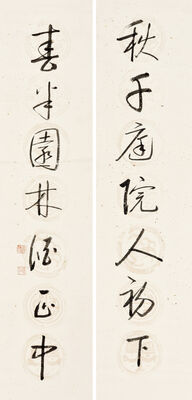 秋千庭院人初下
春半園林酒正中